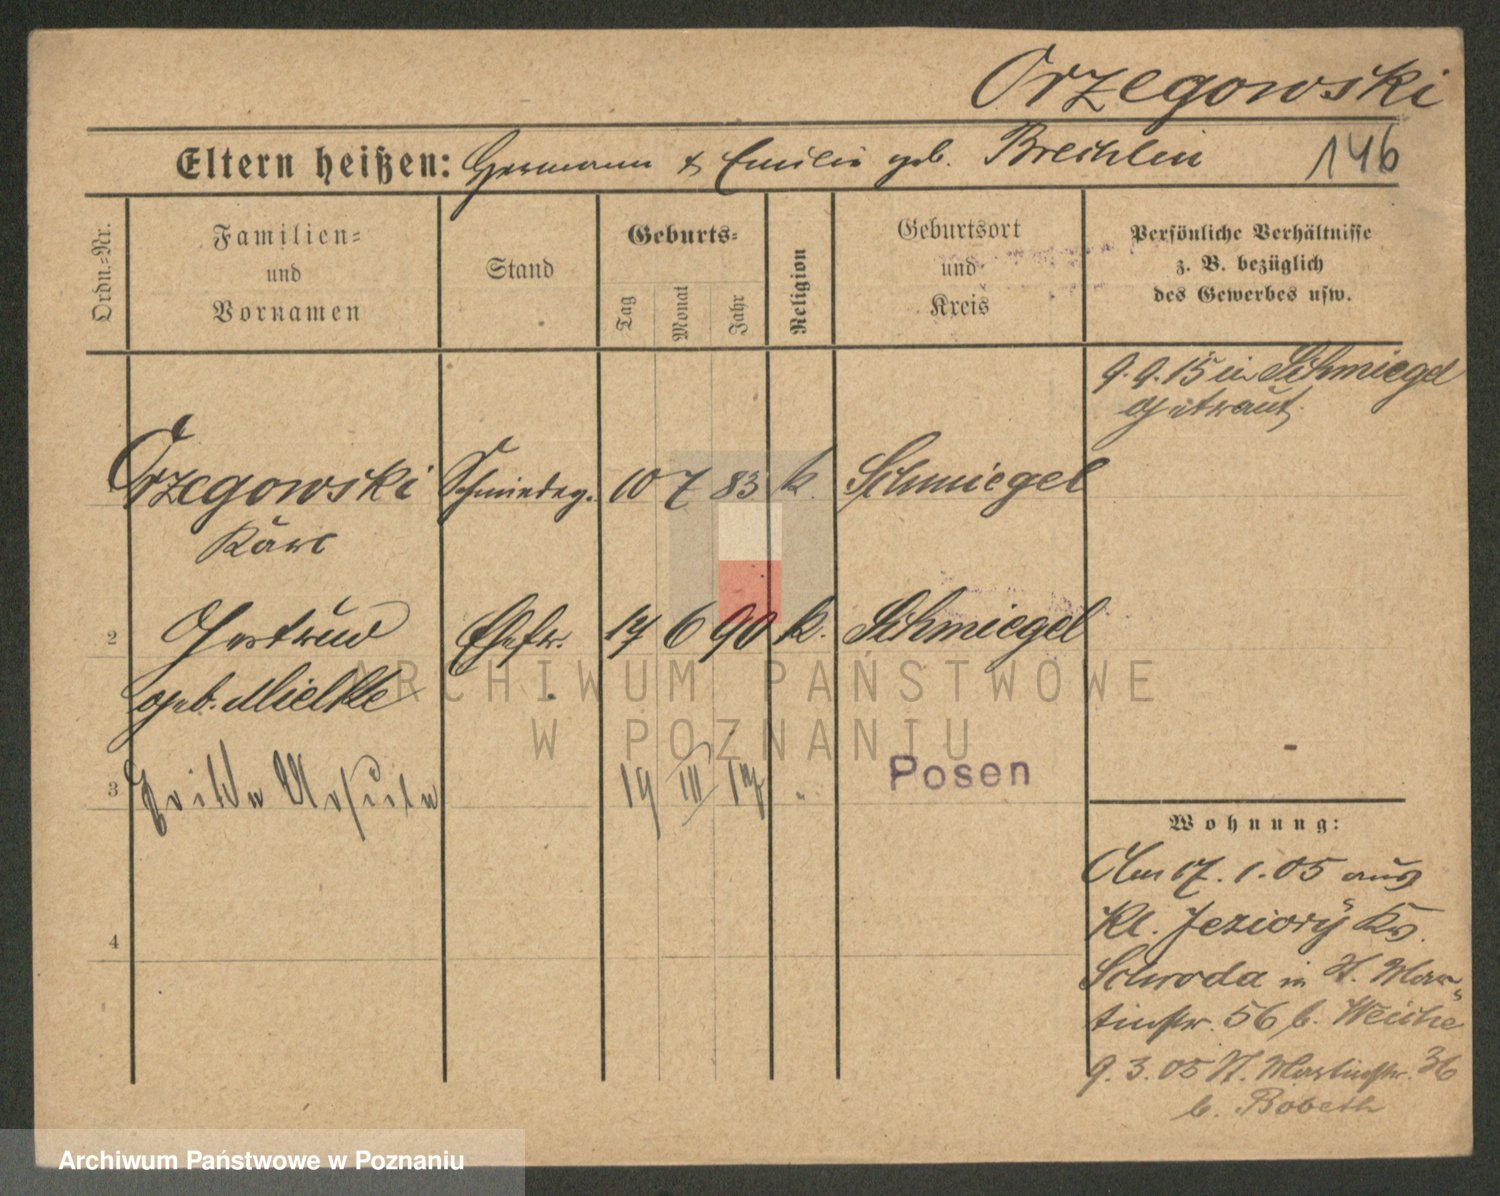 Orzegowski
Eltern heißen: Hermann & Emilie geb. Brechlin 146
Ordn.-Nr.
Familien-
und
Vornamen
Stand
Geburts-
Tag
Monat
Jahr
Religion
Geburtsort
und
Kreis
Persönliche Verhältnisse
z. B. bezüglich
des Gewerbes usw.
9.9.15 in Schmiegel
getraut.
1 Orzegowski Schmiedeg. 10 7 83 k. Schmiegel
Karl
2 Gertrud Ehefr. 17 6 90 k. Schmiegel
geb. Mielke
3 Ursula 19 III 17 " Posen
4
Wohnung:
Am 17.1.05 aus
Kl. Jeziory Kr.
Schroda in St. Mar-
tinstr. 56 b.
9.3.05 St. Martinstr. 36
b.
ARCHIWUM PAŃSTWOWE
W POZNANIU
Archiwum Państwowe w Poznaniu